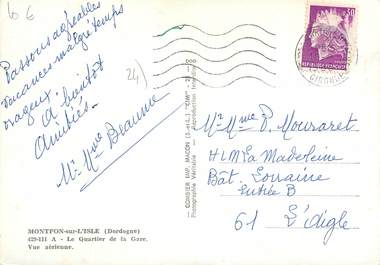 26 6
Passons agréables
vacances malgré temps
orageux.
A bientôt
Amitiés.
Mr Mme Beaume
24)
MONTPON-sur-L'ISLE (Dordogne)
429-111 A - Le Quartier de la Gare.
Vue aérienne.
COMBIER IMP. MACON (S.-et-L.) "CIM"
Photographie Véritable - Reproduction Interdite
0.30
REPUBLIQUE FRANÇAISE
Mr Mme P. Mouraret
HLM La Madeleine
Bât. Lorraine
Entrée B
61 L'Aigle